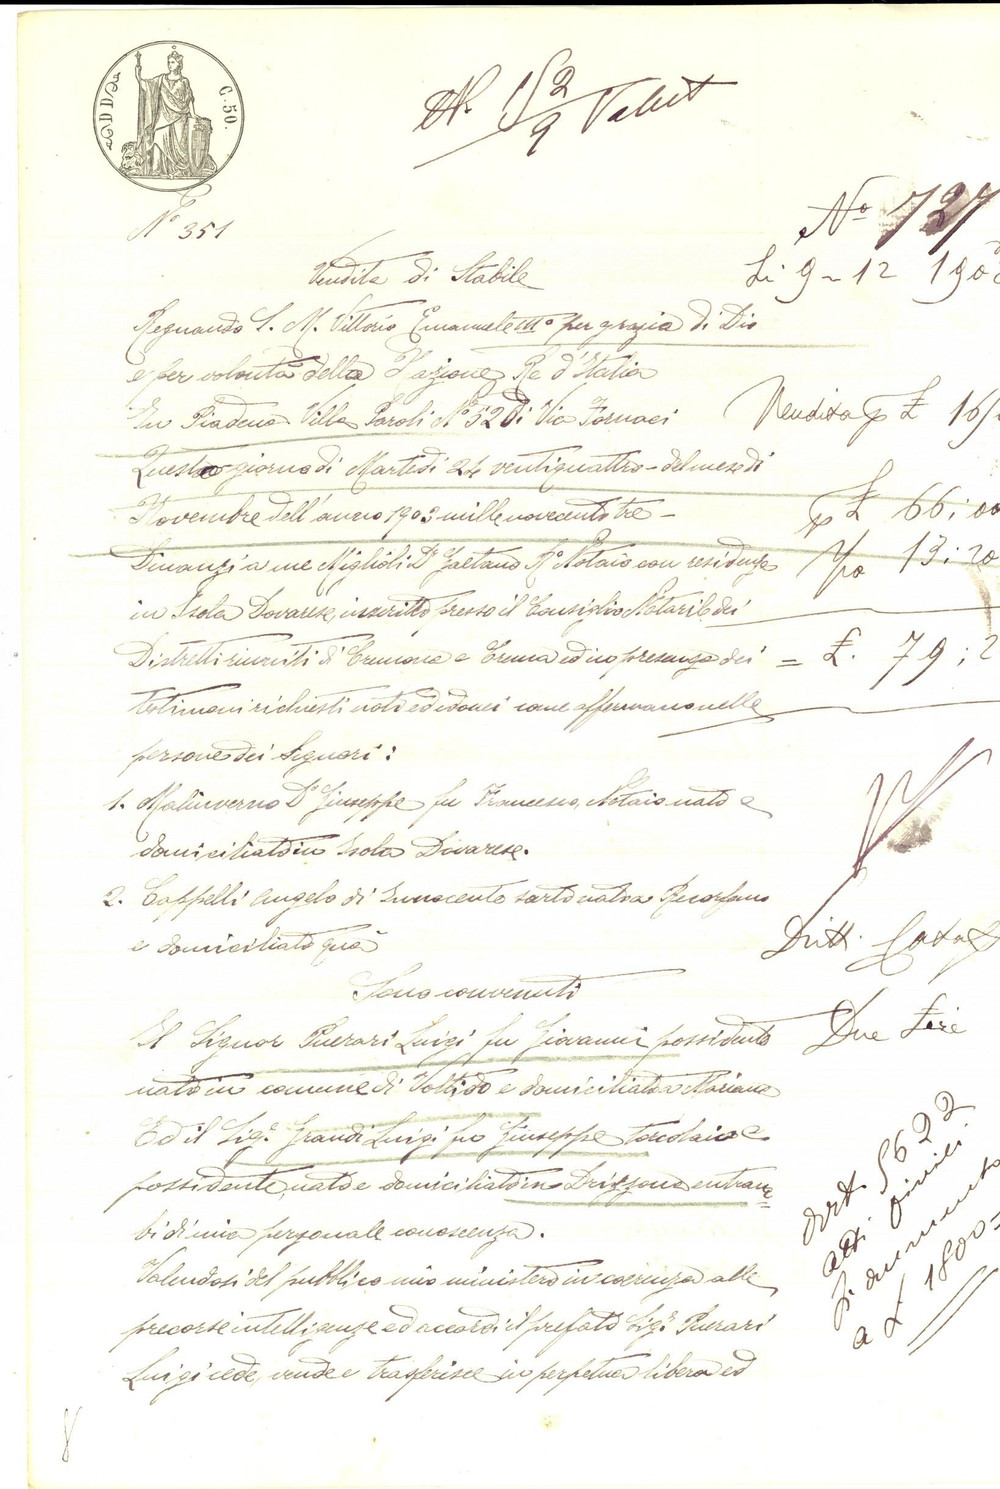 C. 50.
N° 351
N° 727
Li 9 - 12 190
Vendita di Stabile
Regnando S. M. Vittorio Emanuele III° per grazia di Dio
e per volontà della Nazione Re d'Italia
In Piadena Villa Paroli N° 52 Di Via Fornaci
Vendita p £ 16
Questo giorno di Martedì 24 ventiquattro - del mese di
Novembre dell'anno 1903 mille novecento tre -
p £ 66:00
Dinanzi a me Miglioli Dr Gaetano R° Notaio con residenza
13:20
in Isola Dovarese, inscritto presso il Consiglio Notarile dei
Distretti riuniti di Cremona e Crema ed in presenza dei
= £. 79:2
testimoni richiesti noti ed idonei come affermano nelle
persone dei Signori:
1. Malinverno Dr Giuseppe fu Francesco, Notaio nato e
domiciliato in Isola Dovarese.
2. Cappelli Angelo di Innocente sarto nato a Recorfano
e domiciliato quà
Ditt. Catast
Sono convenuti
Il Signor Puerari Luigi fu Giovanni possidente
Due Lire
nato in comune di Voltido e domiciliato a
Ed il Sig. Grandi Luigi fu Giuseppe torcolaio e
possidente, nato e domiciliato in Drizzona entram=
bi di mia personale conoscenza.
Valendosi del pubblico mio ministero in coerenza alle
precorse intelligenze ed accordi il prefato Sig. Puerari
Luigi cede, vende e trasferisce in perpetua libera ed
5622
atti civili
a £ 1800-
8